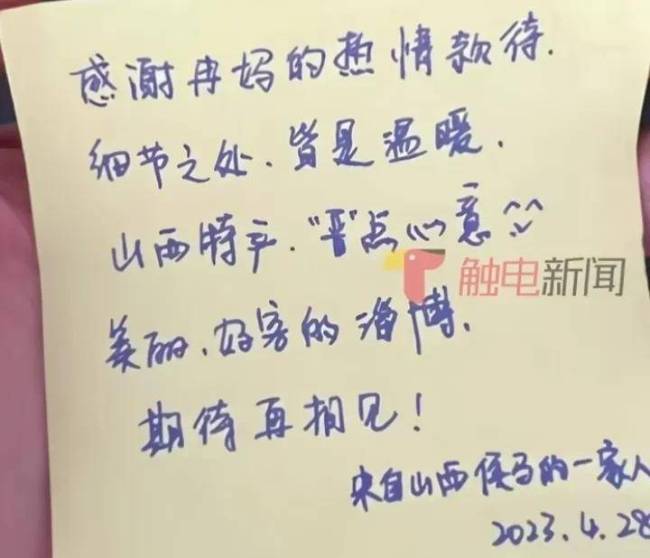 感谢冉妈的热情款待.
细节之处.皆是温暖.
山西特产."晋"点心意^^
触电新闻
美丽.好客的淄博.
期待再相见!
来自山西侯马的一家人
2023.4.28